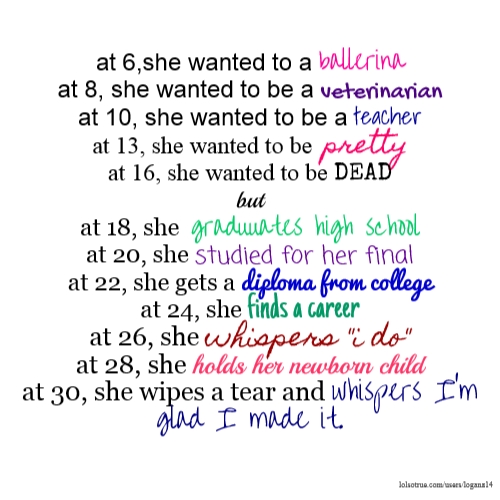 at 6,she wanted to a ballerina
at 8, she wanted to be a veterinarian
at 10, she wanted to be a teacher
at 13, she wanted to be pretty
at 16, she wanted to be DEAD
but
at 18, she graduuates high school
at 20, she studied for her final
at 22, she gets a diploma from college
at 24, she finds a career
at 26, she whispers "i do"
at 28, she holds her newborn child
at 30, she wipes a tear and whispers I'm
glad I made it.
lolsotrue.com/users/loganz14